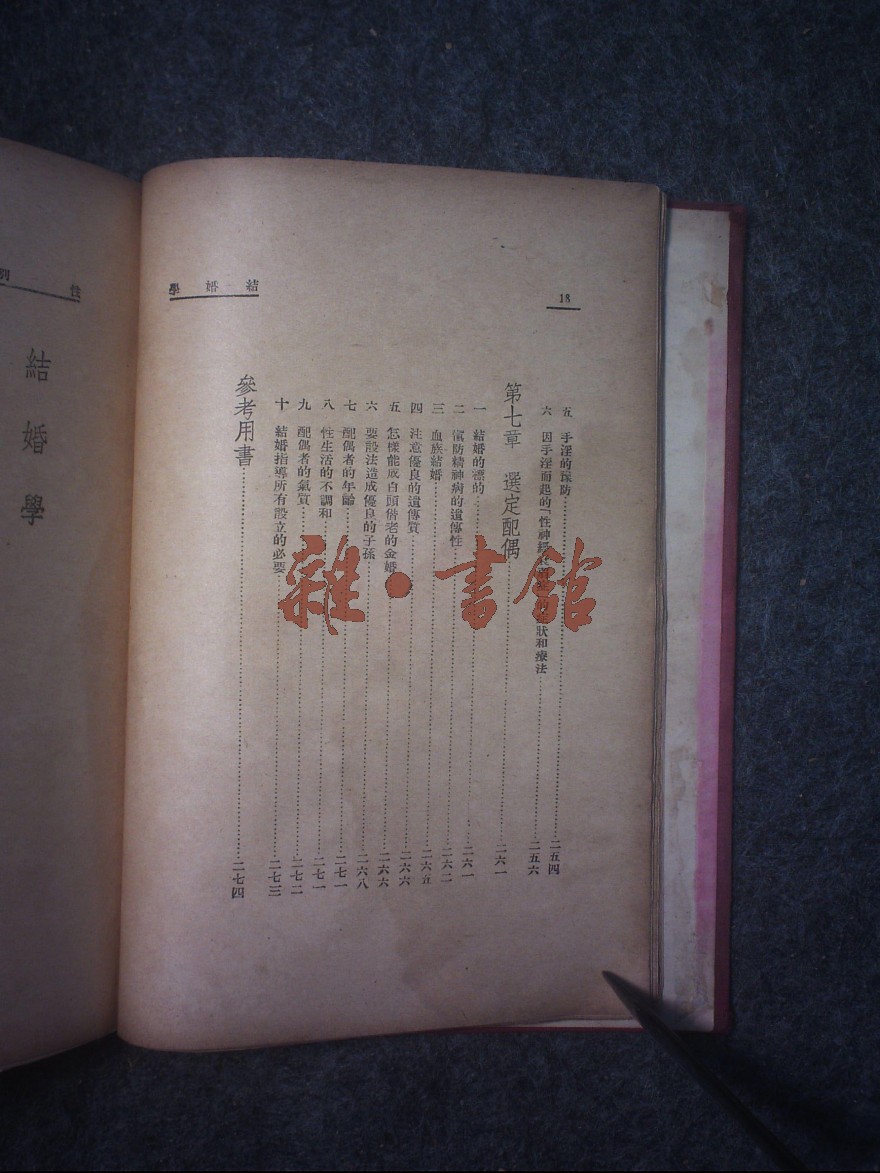 18
結婚學
五 手淫的豫防……二五四
六 因手淫而起的「性神經狀和療法……二五六
第七章 選定配偶……二六一
一 結婚的標的……二六一
二 豫防精神病的遺傳性……二六二
三 血族結婚……二六五
四 注意優良的遺傳質……二六六
五 怎樣能成白頭偕老的金婚……二六六
六 要設法造成優良的子孫……二六八
七 配偶者的年齡……二七一
八 性生活的不調和……二七一
九 配偶者的氣質……二七二
十 結婚指導所有設立的必要……二七三
參考用書……二七四
雜·書館
性別
結婚學